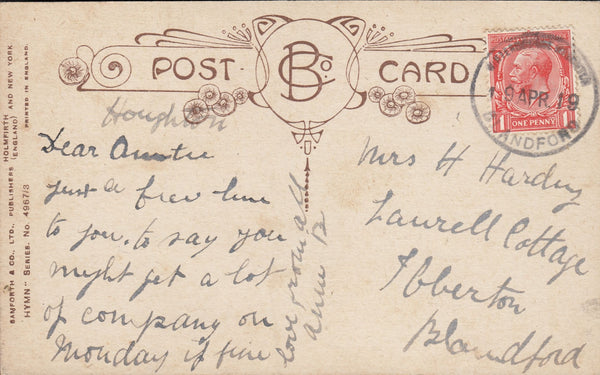 POST CARD
BCo
BAMFORTH & CO., LTD., PUBLISHERS HOLMFIRTH AND NEW YORK
(ENGLAND)
PRINTED IN ENGLAND.
"HYMN" SERIES. NO. 4967/3
Houghton
Dear Auntie
just a few line
to you. to say you
might get a lot
of company on
Monday if fine
love from all
Mrs H Harding
Laurell Cottage
Ibberton
Blandford
ONE PENNY
9 APR 19
BLANDFORD